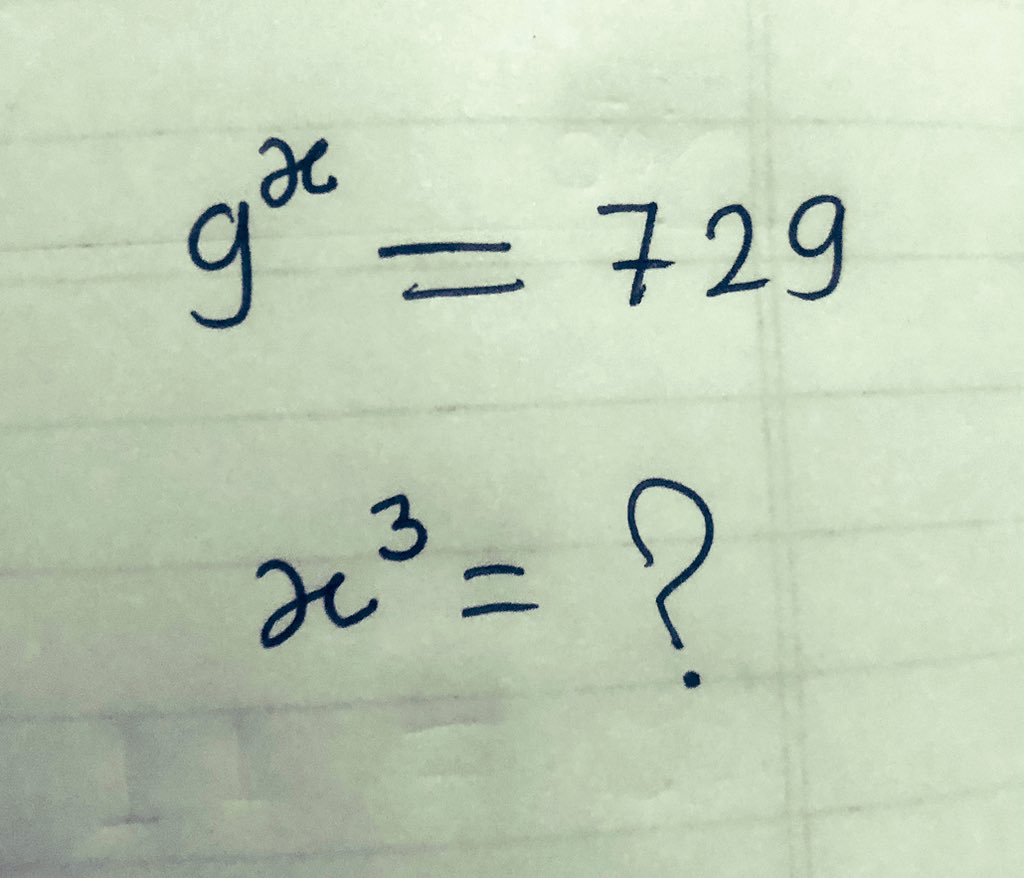 9ˣ = 729
x³ = ?